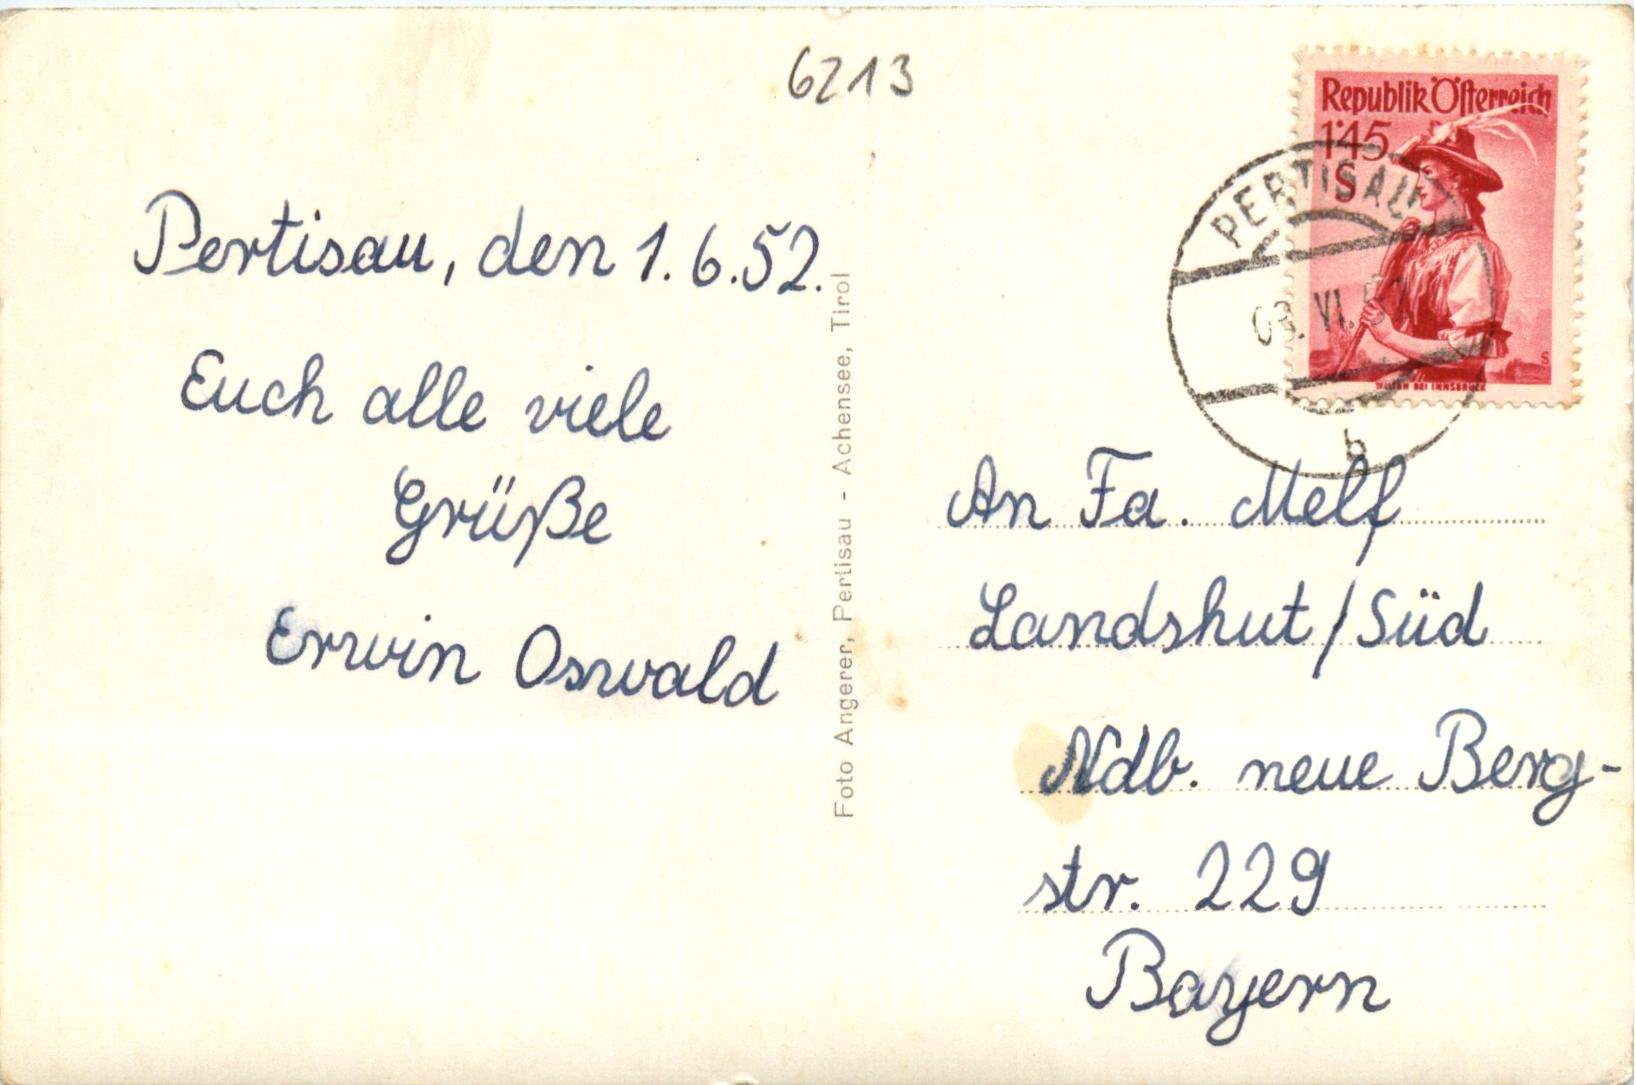 6213
Pertisau, den 1.6.52.
Euch alle viele
Grüße
Erwin Oswald
Foto Angerer, Pertisau - Achensee, Tirol
Republik Österreich
1'45
S
WILTEN BEI INNSBRUCK
PERTISAU
VI. 52
b
An Fa. Melf
Landshut/Süd
Ndb. neue Berg-
str. 229
Bayern